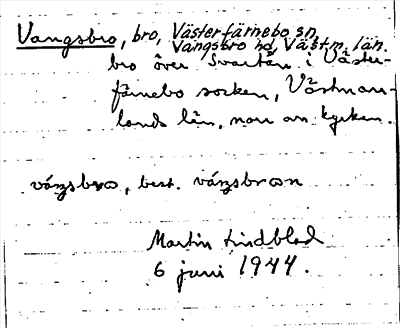 Vangsbro, bro, Västerfärnebo sn,
Vangsbro hd, Västm. län.
bro över Svartån i Väster-
färnebo socken, Västman-
lands län, norr om kyrkan.
váŋsbrω, best. váŋsbrωn
Martin Lindblad
6 juni 1944.